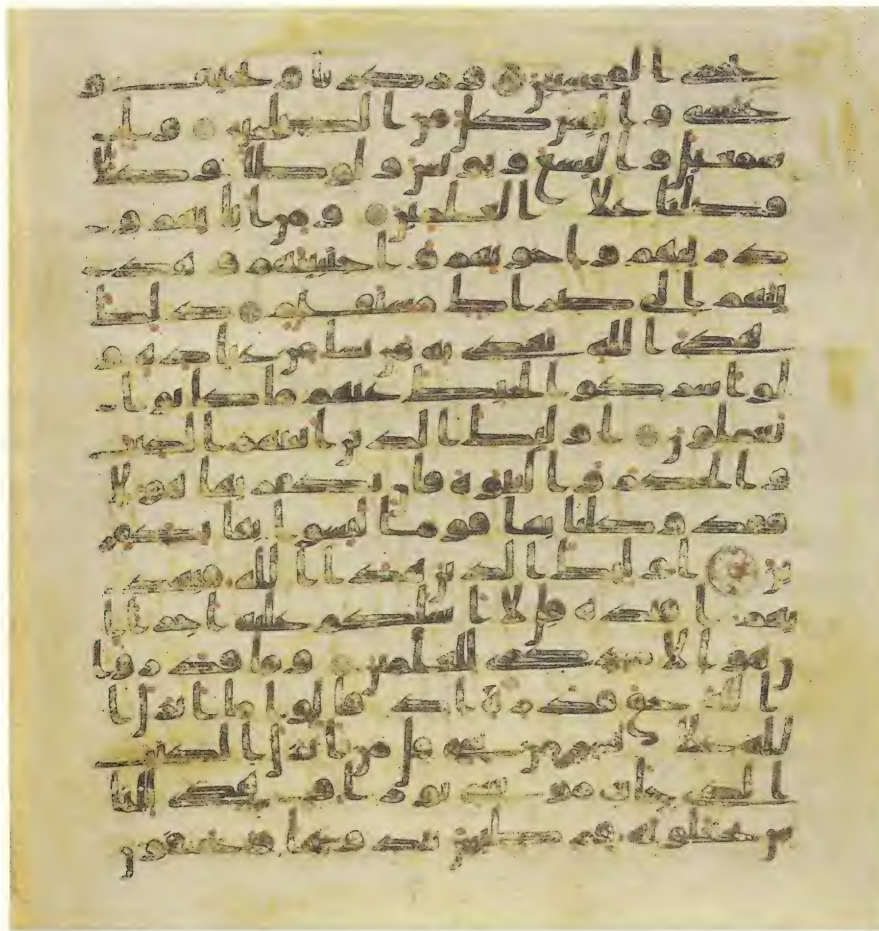 نجزي المحسنين وزكريا ويحيى و
عيسى واليس كل من الصلحين وا
سمعيل واليسع ويونس ولوطا وكلا
فضلنا على العلمين ومن ابائهم و
ذريتهم واخونهم واجتبينهم وهد
ينهم الى صرط مستقيم ذلك
هدى الله يهدى به من يشا من عباده و
لو اشركوا لحبط عنهم ما كانوا
يعملون اولئك الذين اتينهم الكتب
والحكم والنبوة فان يكفر بها هولا
فقد وكلنا بها قوما ليسوا بها بكفر
ين اولئك الذين هدى الله فبهد
يهم اقتده قل لا اسلكم عليه اجرا ا
ن هو الا ذكرى للعلمين وما قدروا
الله حق قدره اذ قالوا ما انزل ا
لله على بشر من شى قل من انزل الكتب
الذى جا به موسى نورا وهدى للنا
س تجعلونه قرطيس تبدونها وتخفون